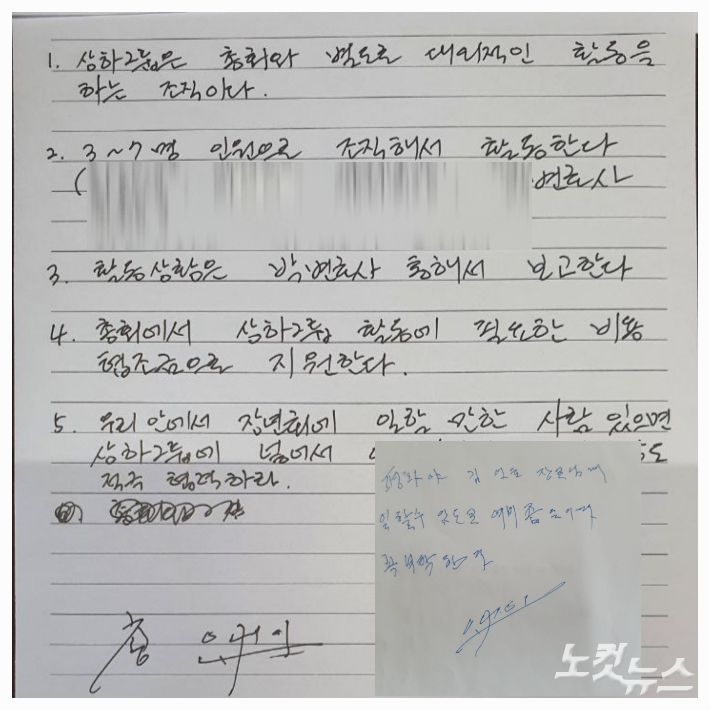 1. 상하그룹은 총회와 별도로 대외적인 활동을
하는 조직이다.
2. 3~7명 인원으로 조직해서 활동한다
( 변호사
3. 활동상황은 박변호사 통해서 보고한다
4. 총회에서 상하그룹 활동에 필요한 비용
협조금으로 지원한다.
5. 우리 안에서 장년회에 일할 만한 사람 있으면
상하그룹에 넣어서 도
적극 협력하라.
총
장로님께
일할수 있도록
꼭 부탁한다
노컷뉴스